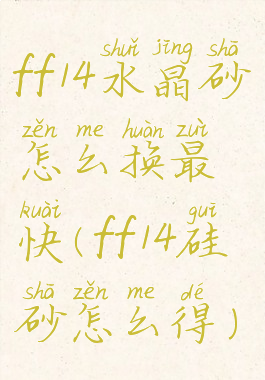 shuǐ jīng shā
ff14水晶砂
zěn me huàn zuì
怎么换最
kuài guī
快(ff14硅
shā zěn me dé
砂怎么得)